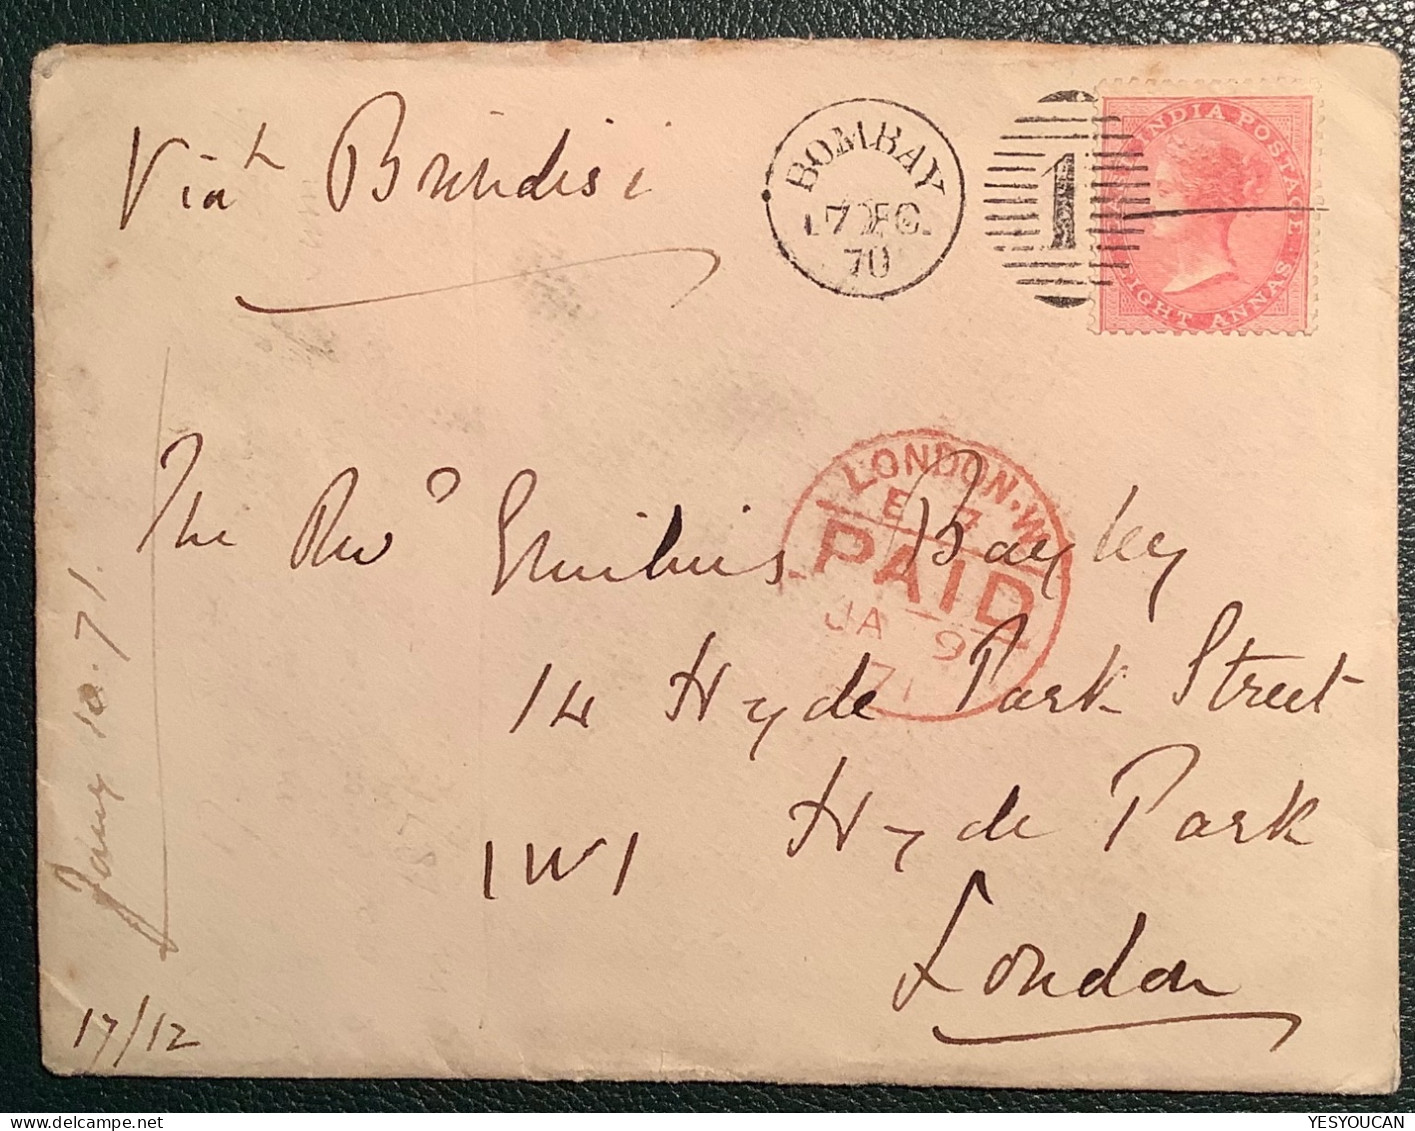 Via Brindisi
BOMBAY
17 DEC.
70
1
INDIA POSTAGE
EIGHT ANNAS
LONDON.W
E 7
PAID
JA 9
71
The Revd Emilius Bayley
14 Hyde Park Street
Hyde Park
1W1
London
Jany 10.71.
17/12
YESYOUCAN